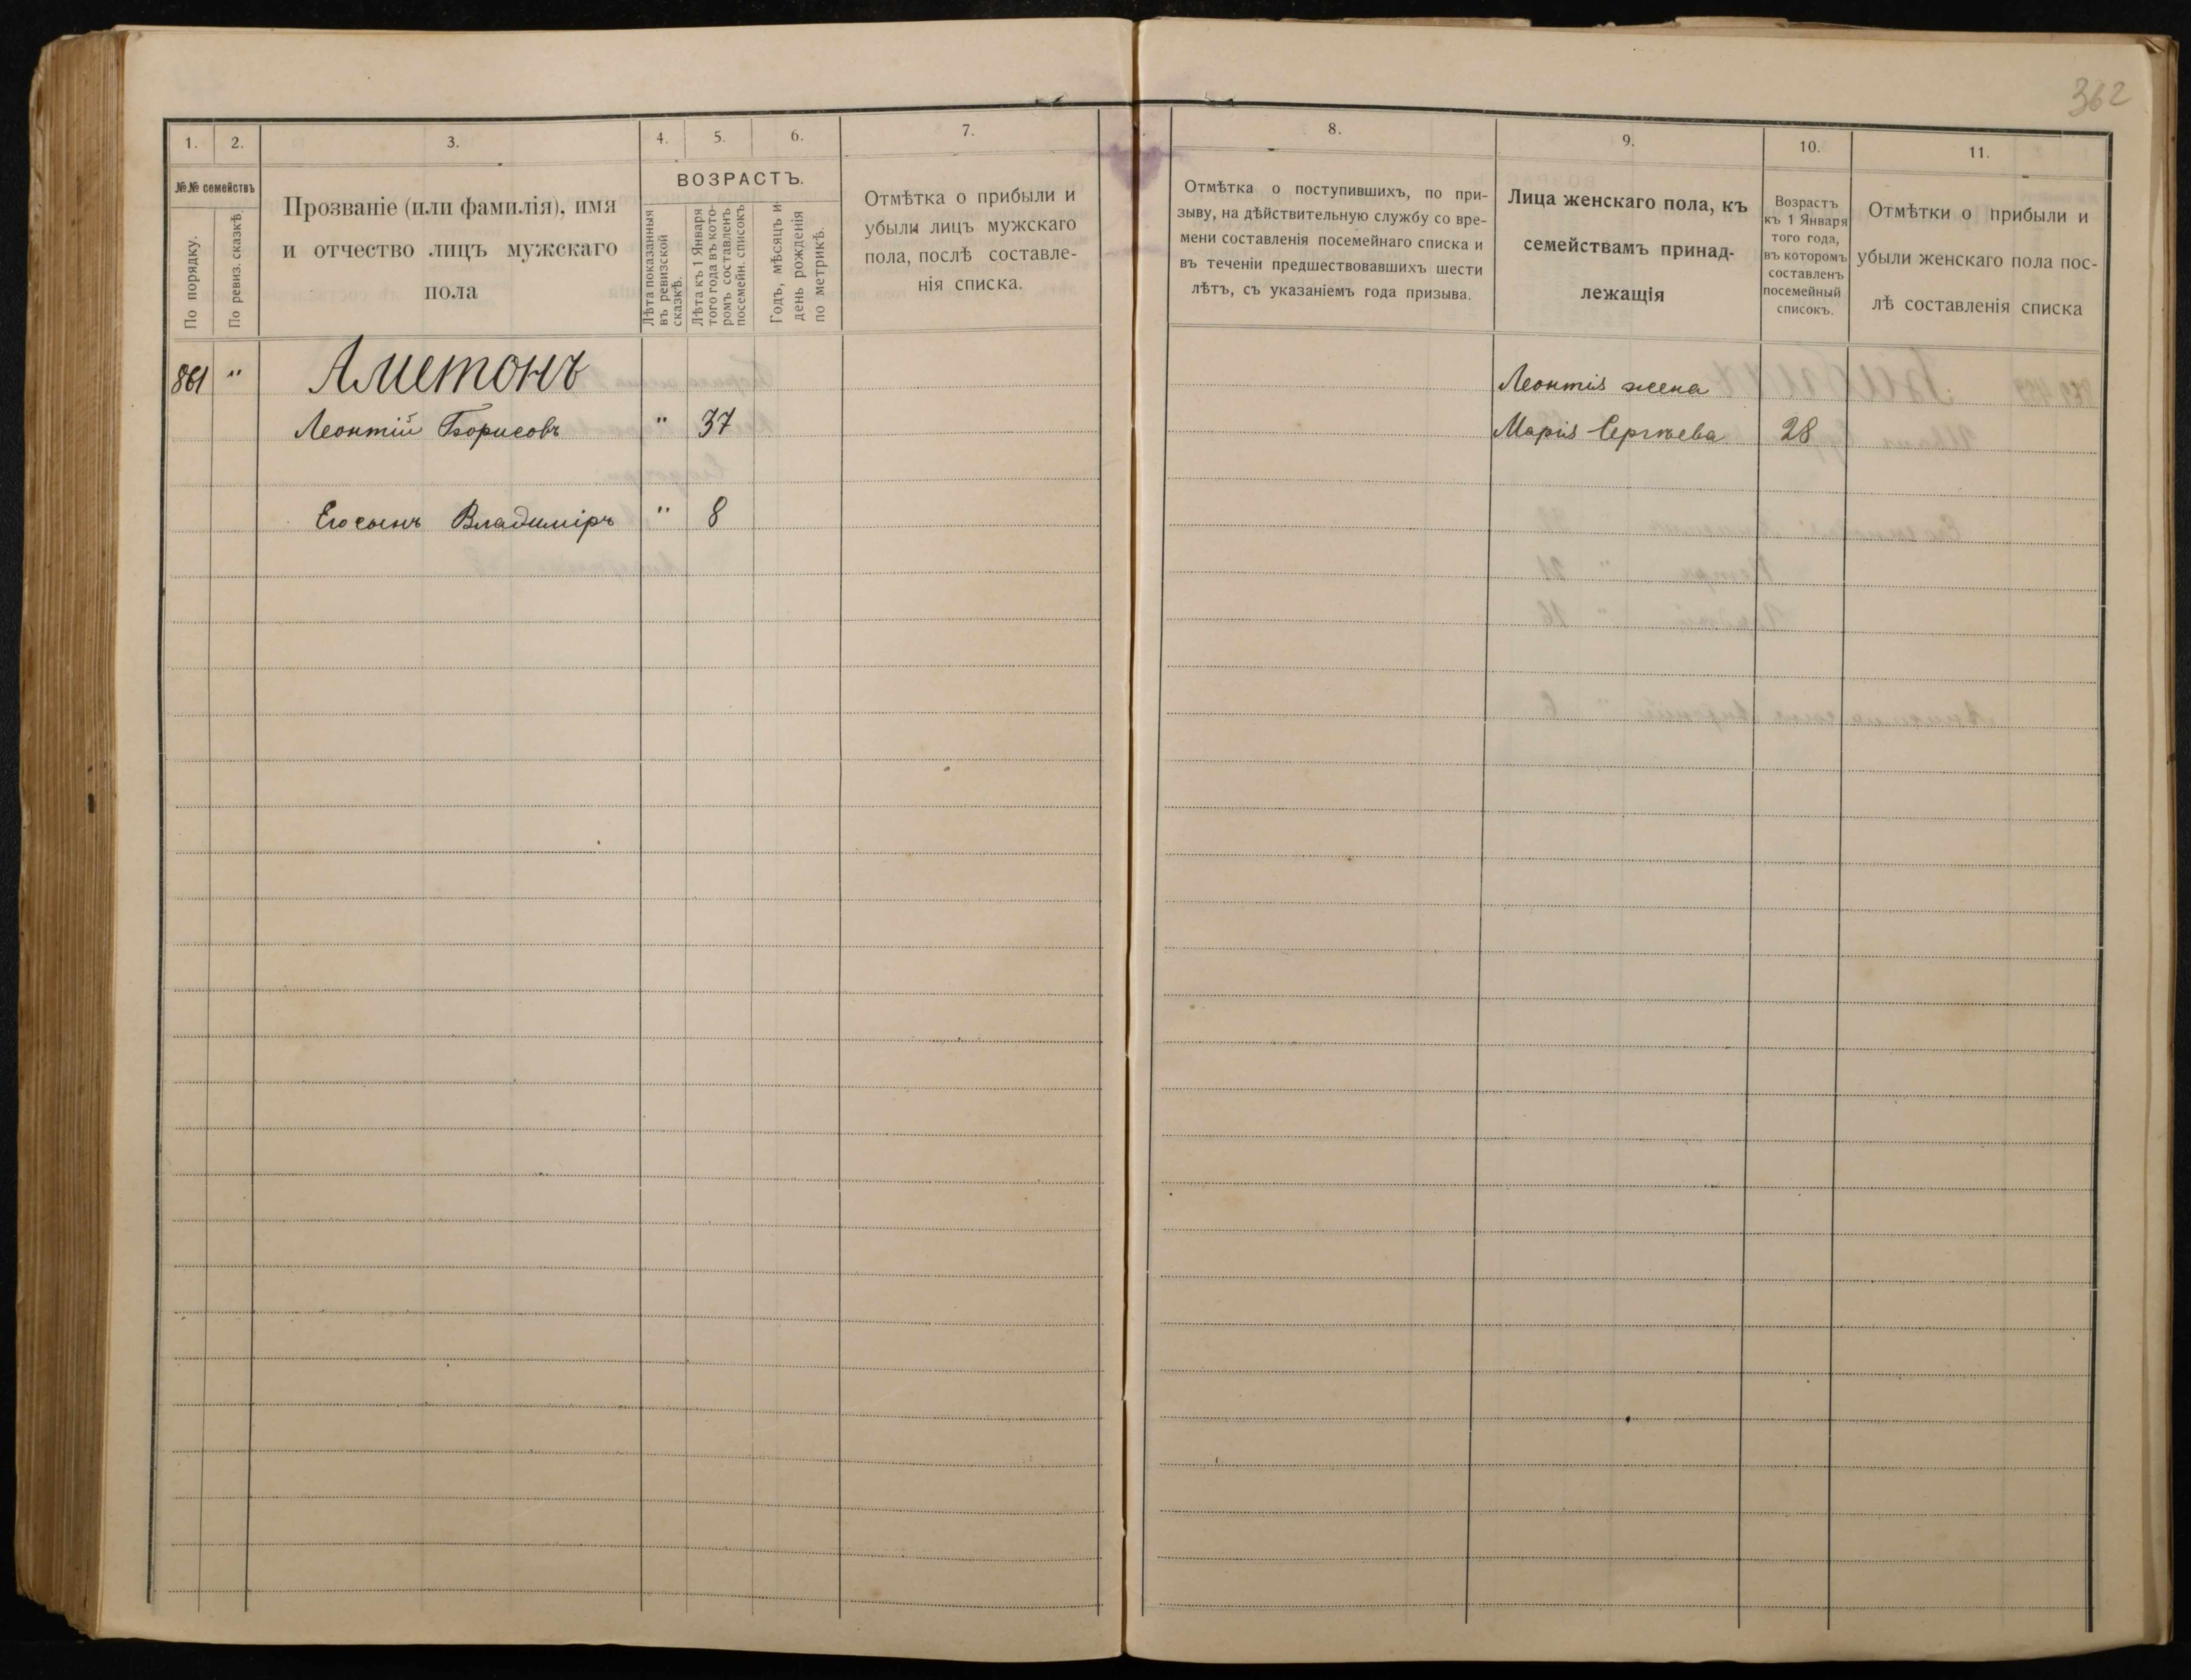 362
1. 2. 3. 4. 5. 6. 7.
№№ семействъ
По порядку.
По ревиз. сказкѣ.
Прозваніе (или фамилія), имя
и отчество лицъ мужскаго
пола
ВОЗРАСТЪ.
Лѣта показанныя
въ ревизской
сказкѣ.
Лѣта къ 1 Января
того года въ кото-
ромъ составленъ
посемейн. списокъ
Годъ, мѣсяцъ и
день рожденія
по метрикѣ.
Отмѣтка о прибыли и
убыли лицъ мужскаго
пола, послѣ составле-
нія списка.
861 " Аметонъ
Леонтій Борисовъ " 37
Его сынъ Владиміръ " 8
8. 9. 10. 11.
Отмѣтка о поступившихъ, по при-
зыву, на дѣйствительную службу со вре-
мени составленія посемейнаго списка и
въ теченіи предшествовавшихъ шести
лѣтъ, съ указаніемъ года призыва.
Лица женскаго пола, къ
семействамъ принад-
лежащія
Возрастъ
къ 1 Января
того года,
въ которомъ
составленъ
посемейный
списокъ.
Отмѣтки о прибыли и
убыли женскаго пола пос-
лѣ составленія списка
Леонтія жена
Марія Сергѣева 28